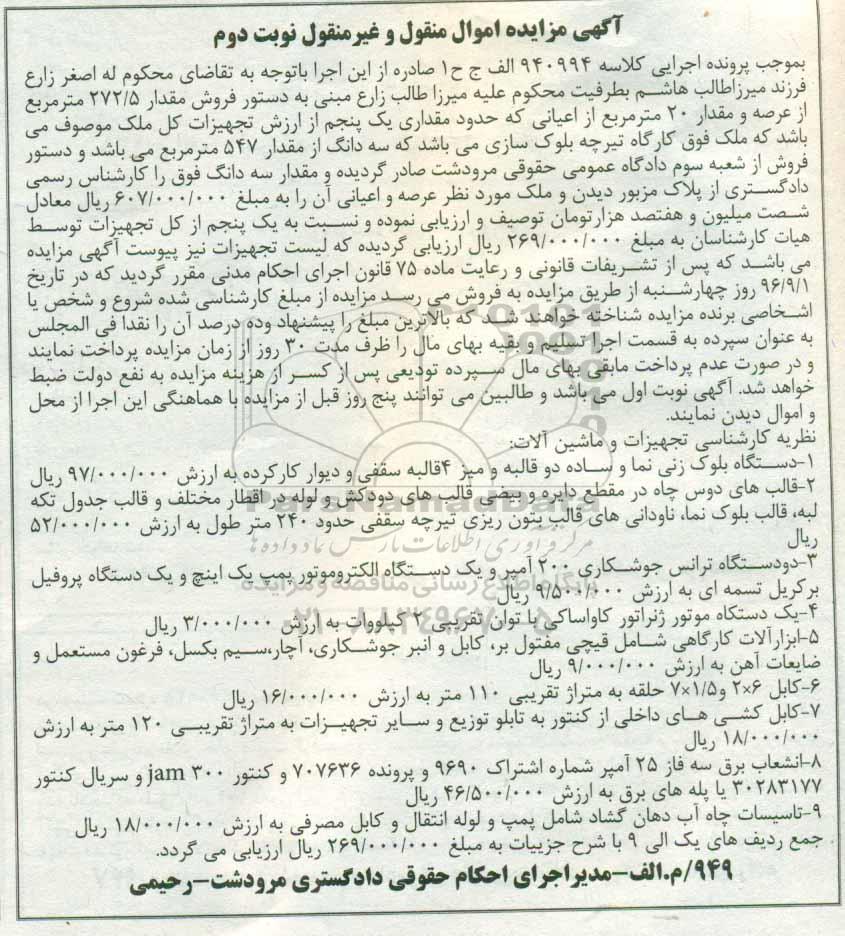 آگهی مزایده اموال منقول و غیرمنقول نوبت دوم
بموجب پرونده اجرایی کلاسه ۹۴۰۹۹۴ الف ج ح۱ صادره از این اجرا باتوجه به تقاضای محکوم له اصغر زارع
فرزند میرزاطالب هاشم بطرفیت محکوم علیه میرزا طالب زارع مبنی به دستور فروش مقدار ۲۷۲/۵ مترمربع
از عرصه و مقدار ۲۰ مترمربع از اعیانی که حدود مقداری یک پنجم از ارزش تجهیزات کل ملک موصوف می
باشد که ملک فوق کارگاه تیرچه بلوک سازی می باشد که سه دانگ از مقدار ۵۴۷ مترمربع می باشد و دستور
فروش از شعبه سوم دادگاه عمومی حقوقی مرودشت صادر گردیده و مقدار سه دانگ فوق را کارشناس رسمی
دادگستری از پلاک مزبور دیدن و ملک مورد نظر عرصه و اعیانی آن را به مبلغ ۶۰۷/۰۰۰/۰۰۰ ریال معادل
شصت میلیون و هفتصد هزارتومان توصیف و ارزیابی نموده و نسبت به یک پنجم از کل تجهیزات توسط
هیات کارشناسان به مبلغ ۲۶۹/۰۰۰/۰۰۰ ریال ارزیابی گردیده که لیست تجهیزات نیز پیوست آگهی مزایده
می باشد که پس از تشریفات قانونی و رعایت ماده ۷۵ قانون اجرای احکام مدنی مقرر گردید که در تاریخ
۹۶/۹/۱ روز چهارشنبه از طریق مزایده به فروش می رسد مزایده از مبلغ کارشناسی شده شروع و شخص یا
اشخاصی برنده مزایده شناخته خواهند شد که بالاترین مبلغ را پیشنهاد وده درصد آن را نقدا فی المجلس
به عنوان سپرده به قسمت اجرا تسلیم و بقیه بهای مال را ظرف مدت ۳۰ روز از زمان مزایده پرداخت نمایند
و در صورت عدم پرداخت مابقی بهای مال سپرده تودیعی پس از کسر از هزینه مزایده به نفع دولت ضبط
خواهد شد. آگهی نوبت اول می باشد و طالبین می توانند پنج روز قبل از مزایده با هماهنگی این اجرا از محل
و اموال دیدن نمایند.
نظریه کارشناسی تجهیزات و ماشین آلات:
۱-دستگاه بلوک زنی نما و ساده دو قالبه و میز ۴قالبه سقفی و دیوار کارکرده به ارزش ۹۷/۰۰۰/۰۰۰ ریال
۲-قالب های دوس چاه در مقطع دایره و بیضی قالب های دودکش و لوله در اقطار مختلف و قالب جدول تکه
لبه، قالب بلوک نما، ناودانی های قالب بتون ریزی تیرچه سقفی حدود ۲۴۰ متر طول به ارزش ۵۲/۰۰۰/۰۰۰
ریال
۳-دودستگاه ترانس جوشکاری ۲۰۰ آمپر و یک دستگاه الکتروموتور پمپ یک اینچ و یک دستگاه پروفیل
برکریل تسمه ای به ارزش ۹/۵۰۰/۰۰۰ ریال
۴-یک دستگاه موتور ژنراتور کاواساکی با توان تقریبی ۲ کیلووات به ارزش ۳/۰۰۰/۰۰۰ ریال
۵-ابزارآلات کارگاهی شامل قیچی مفتول بر، کابل و انبر جوشکاری، آچار،سیم بکسل، فرغون مستعمل و
ضایعات آهن به ارزش ۹/۰۰۰/۰۰۰ ریال
۶-کابل ۶×۲ و۱/۵×۷ حلقه به متراژ تقریبی ۱۱۰ متر به ارزش ۱۶/۰۰۰/۰۰۰ ریال
۷-کابل کشی های داخلی از کنتور به تابلو توزیع و سایر تجهیزات به متراژ تقریبی ۱۲۰ متر به ارزش
۱۸/۰۰۰/۰۰۰ ریال
۸-انشعاب برق سه فاز ۲۵ آمپر شماره اشتراک ۹۶۹۰ و پرونده ۷۰۷۶۳۶ و کنتور jam ۳۰۰ و سریال کنتور
۳۰۲۸۳۱۷۷ یا پله های برق به ارزش ۴۶/۵۰۰/۰۰۰ ریال
۹-تاسیسات چاه آب دهان گشاد شامل پمپ و لوله انتقال و کابل مصرفی به ارزش ۱۸/۰۰۰/۰۰۰ ریال
جمع ردیف های یک الی ۹ با شرح جزییات به مبلغ ۲۶۹/۰۰۰/۰۰۰ ریال ارزیابی می گردد.
۹۴۹/م.الف-مدیراجرای احکام حقوقی دادگستری مرودشت-رحیمی
ParsNamadData
مرکز فرآوری اطلاعات پارس نماد داده ها
پایگاه اطلاع رسانی مناقصه و مزایده
۰۲۱-۸۸۳۴۹۶۷۰-۵